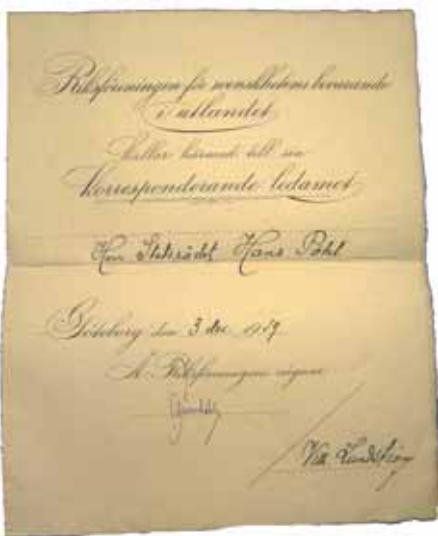 Riksföreningen för svenskhetens bevarande
i utlandet
kallar härmed till sin
korresponderande ledamot
Herr Hans Pöhl
Göteborg den 3 dec 1929
Å Riksföreningens vägnar
Vilh. Lundström